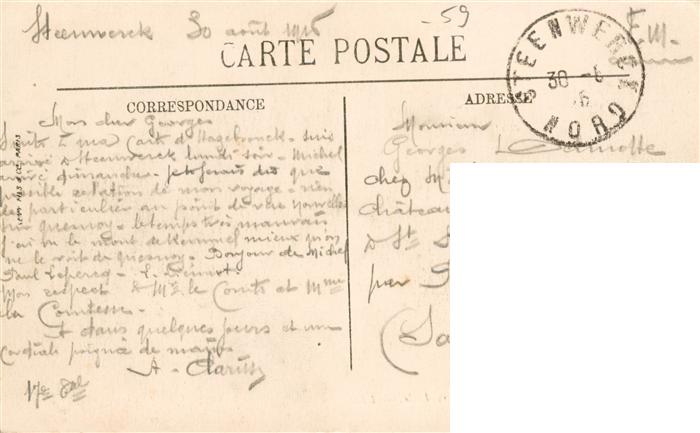 Steenwerck 30 août 1915
-59
F.M.
CARTE POSTALE
STEENWERCK
30 -8
15
NORD
CORRESPONDANCE
ADRESSE
Mon cher Georges
Suite à ma carte d'Hazebrouck - suis
arrivé à Steenwerck lundi soir - Michel
arrivé dimanche - je ferai dès que
possible relation de mon voyage - rien
de particulier au point de vue nouvelles
sur Quesnoy - le temps très mauvais
J'ai vu le mont de Kemmel mieux qu'on
ne le voit de Quesnoy - Bonjour de Michel
Paul Lepercq -
Mon respect à Mr le Comte et Mme
la Comtesse -
A dans quelques jours et une
Cordiale poignée de mains
A - 
17e
Monsieur
Georges
chez M
Château
à St
par
(Sa